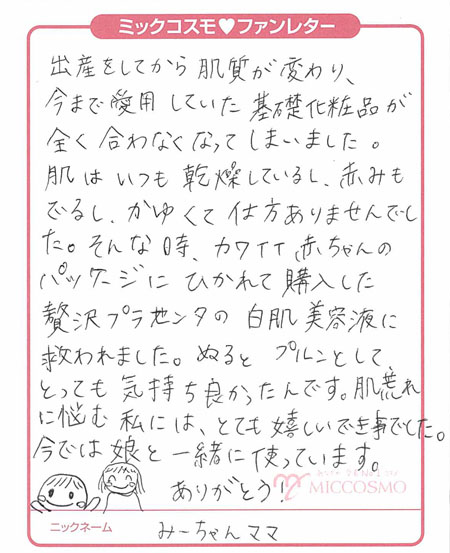 ミックコスモ♥ファンレター
出産をしてから肌質が変わり、
今まで愛用していた基礎化粧品が
全く合わなくなってしまいました。
肌はいつも乾燥しているし、赤みも
でるし、かゆくて仕方ありませんでし
た。そんな時、カワイイ赤ちゃんの
パッケージにひかれて購入した
贅沢プラセンタの白肌美容液に
救われました。ぬるとプルンとして、
とっても気持ち良かったんです。肌荒れ
に悩む私には、とても嬉しいでき事でした。
今では娘と一緒に使っています。
ありがとう!
MICCOSMO
ニックネーム みーちゃんママ